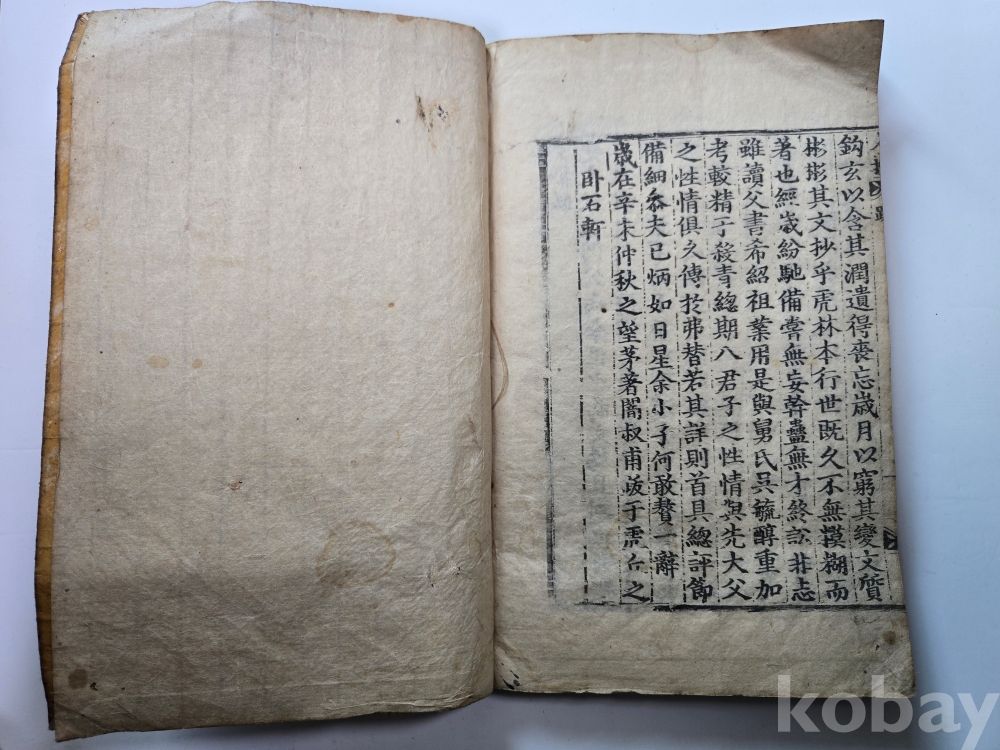 鈎玄以含其潤遺得喪忘歲月以窮其變文質
彬彬其文抄乎虎林本行世既久不無模糊而
著也經歲紛馳備嘗無妄幹蠱無才終訟非志
雖讀父書希紹祖業用是與舅氏吳毓醇重加
考較精于殺青總期八君子之性情與先大父
之性情俱久傳於弗替若其詳則首具總評節
備細叅夫已炳如日星余小子何敢贅一辭
歲在辛未仲秋之望茅著闇叔甫跋于之
卧石軒
kobay